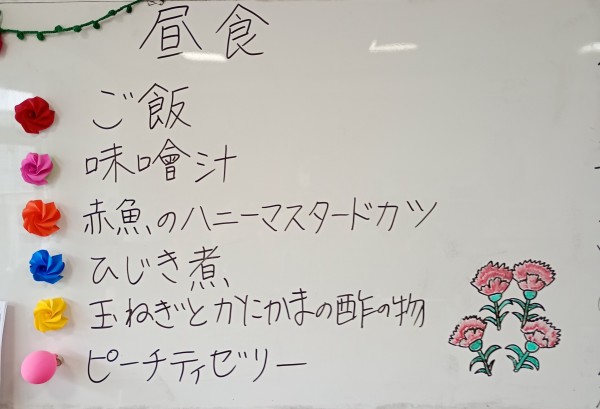 昼食
ご飯
味噌汁
赤魚のハニーマスタードカツ
ひじき煮
玉ねぎとかにかまの酢の物
ピーチティゼリー